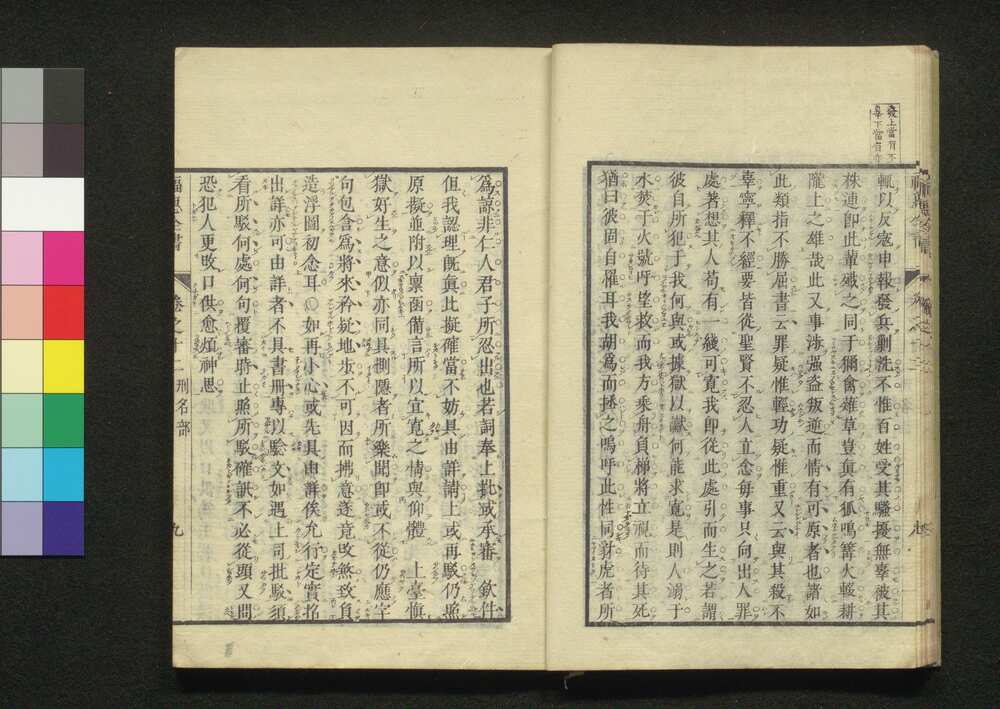 發上當有不
辜下當有
輒以反寇申報發兵剿洗不惟百姓受其騷擾無辜被其
株連即此輩殲之同于獮禽薙草豈眞有狐鳴篝火輟耕
隴上之雄哉此又事涉强盗叛逆而情有可原者也諸如
此類指不勝屈書云罪疑惟輕功疑惟重又云與其殺不
辜寧釋不經要皆從聖賢不忍人立念毎事只向出人罪
處著想其人苟有一綫可寛我即從此處引而生之若謂
彼自所犯于我何與或據獄以讞何能求寛是則人溺于
水焚于火號呼望救而我方乘舟負梯將立視而待其死
猶曰彼固自罹耳我胡為而拯之嗚呼此性同豺虎者所
爲諒非仁人君子所忍出也若詞奉上批或承審　欽件
但我認理旣眞比擬確當不妨具由詳請上或再駁仍照
原擬並附以禀函備言所以宜寛之情與仰體　上臺愼
獄好生之意似亦同具惻隱者所樂聞即或不從仍應字
句包含爲將來矜疑地步不可因而拂意遂竟改煞致負
造浮圖初念耳○如再小心或先具由詳俟允行定實招
出詳亦可由詳者不具書冊專以驗文如遇上司批駁須
看所駁何處何句覆審時止照所駁確訊不必從頭又問
恐犯人更改口供愈煩神思
福惠全書　卷之十二　刑名部　九